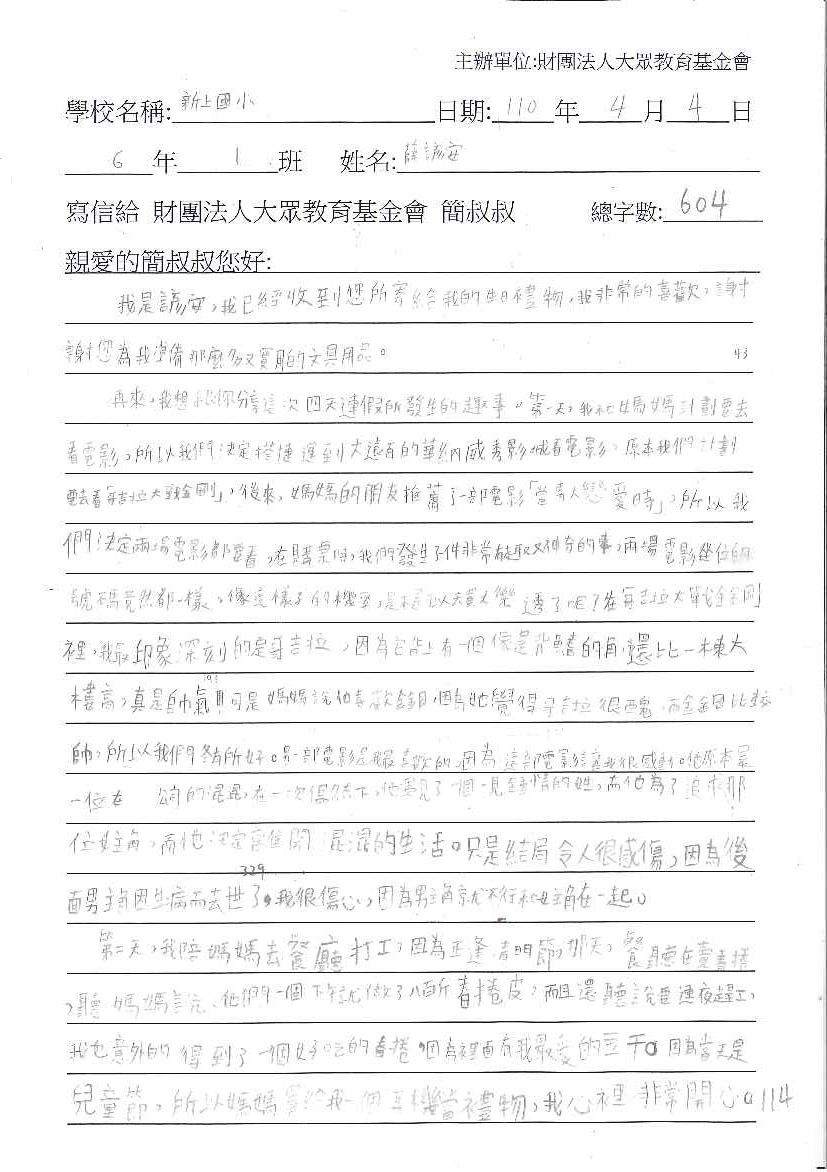 主辦單位:財團法人大眾教育基金會
學校名稱: 新上國小 日期: 110 年 4 月 4 日
6 年 1 班 姓名: 薛諺安
寫信給 財團法人大眾教育基金會 簡叔叔 總字數: 604
親愛的簡叔叔您好:
我是諺安,我已經收到您所寄給我的生日禮物,我非常的喜歡,謝
謝您為我準備那麼多又實用的文具用品。 43
再來,我想和你分享這次四天連假所發生的趣事。第一天,我和媽媽計劃要去
看電影,所以我們決定搭捷運到大遠百的華納威秀影城看電影,原本我們計劃
要去看「哥吉拉大戰金剛」,後來,媽媽的朋友推薦了一部電影「當男人戀愛時」,所以我
們決定兩場電影都要看,在購票時,我們發生了件非常有趣又神奇的事,兩場電影座位的
號碼竟然都一樣,像這樣子的機率,是不是可以去買大樂透了呢?在哥吉拉大戰金剛
裡,我最印象深刻的是哥吉拉,因為它背上有一個像是背鰭的角,還比一棟大
樓高,真是帥氣!可是媽媽說她喜歡金剛,因為她覺得哥吉拉很醜,而金剛比較
帥,所以我們各有所好。另一部電影是我最喜歡的,因為這部電影讓我很感動。他原本是
一位在 公司的混混,在一次偶然下,他遇見了一個一見鍾情的女生,而他為了追求那
位女主角,而他決定離開混混的生活。只是結局令人很感傷,因為後
329
面男主角因生病而去世了,我很傷心,因為男主角就不行和女主角在一起。
第二天,我陪媽媽去餐廳打工,因為正逢清明節,那天,餐廳在賣春捲
,聽媽媽說,他們一個下午就做了八百斤春捲皮,而且還聽說要連夜趕工,
我也意外的得到了一個好吃的春捲,因為裡面有我最愛的豆干。因為當天是
兒童節,所以媽媽買給我一個耳機當禮物,我心裡非常開心。114